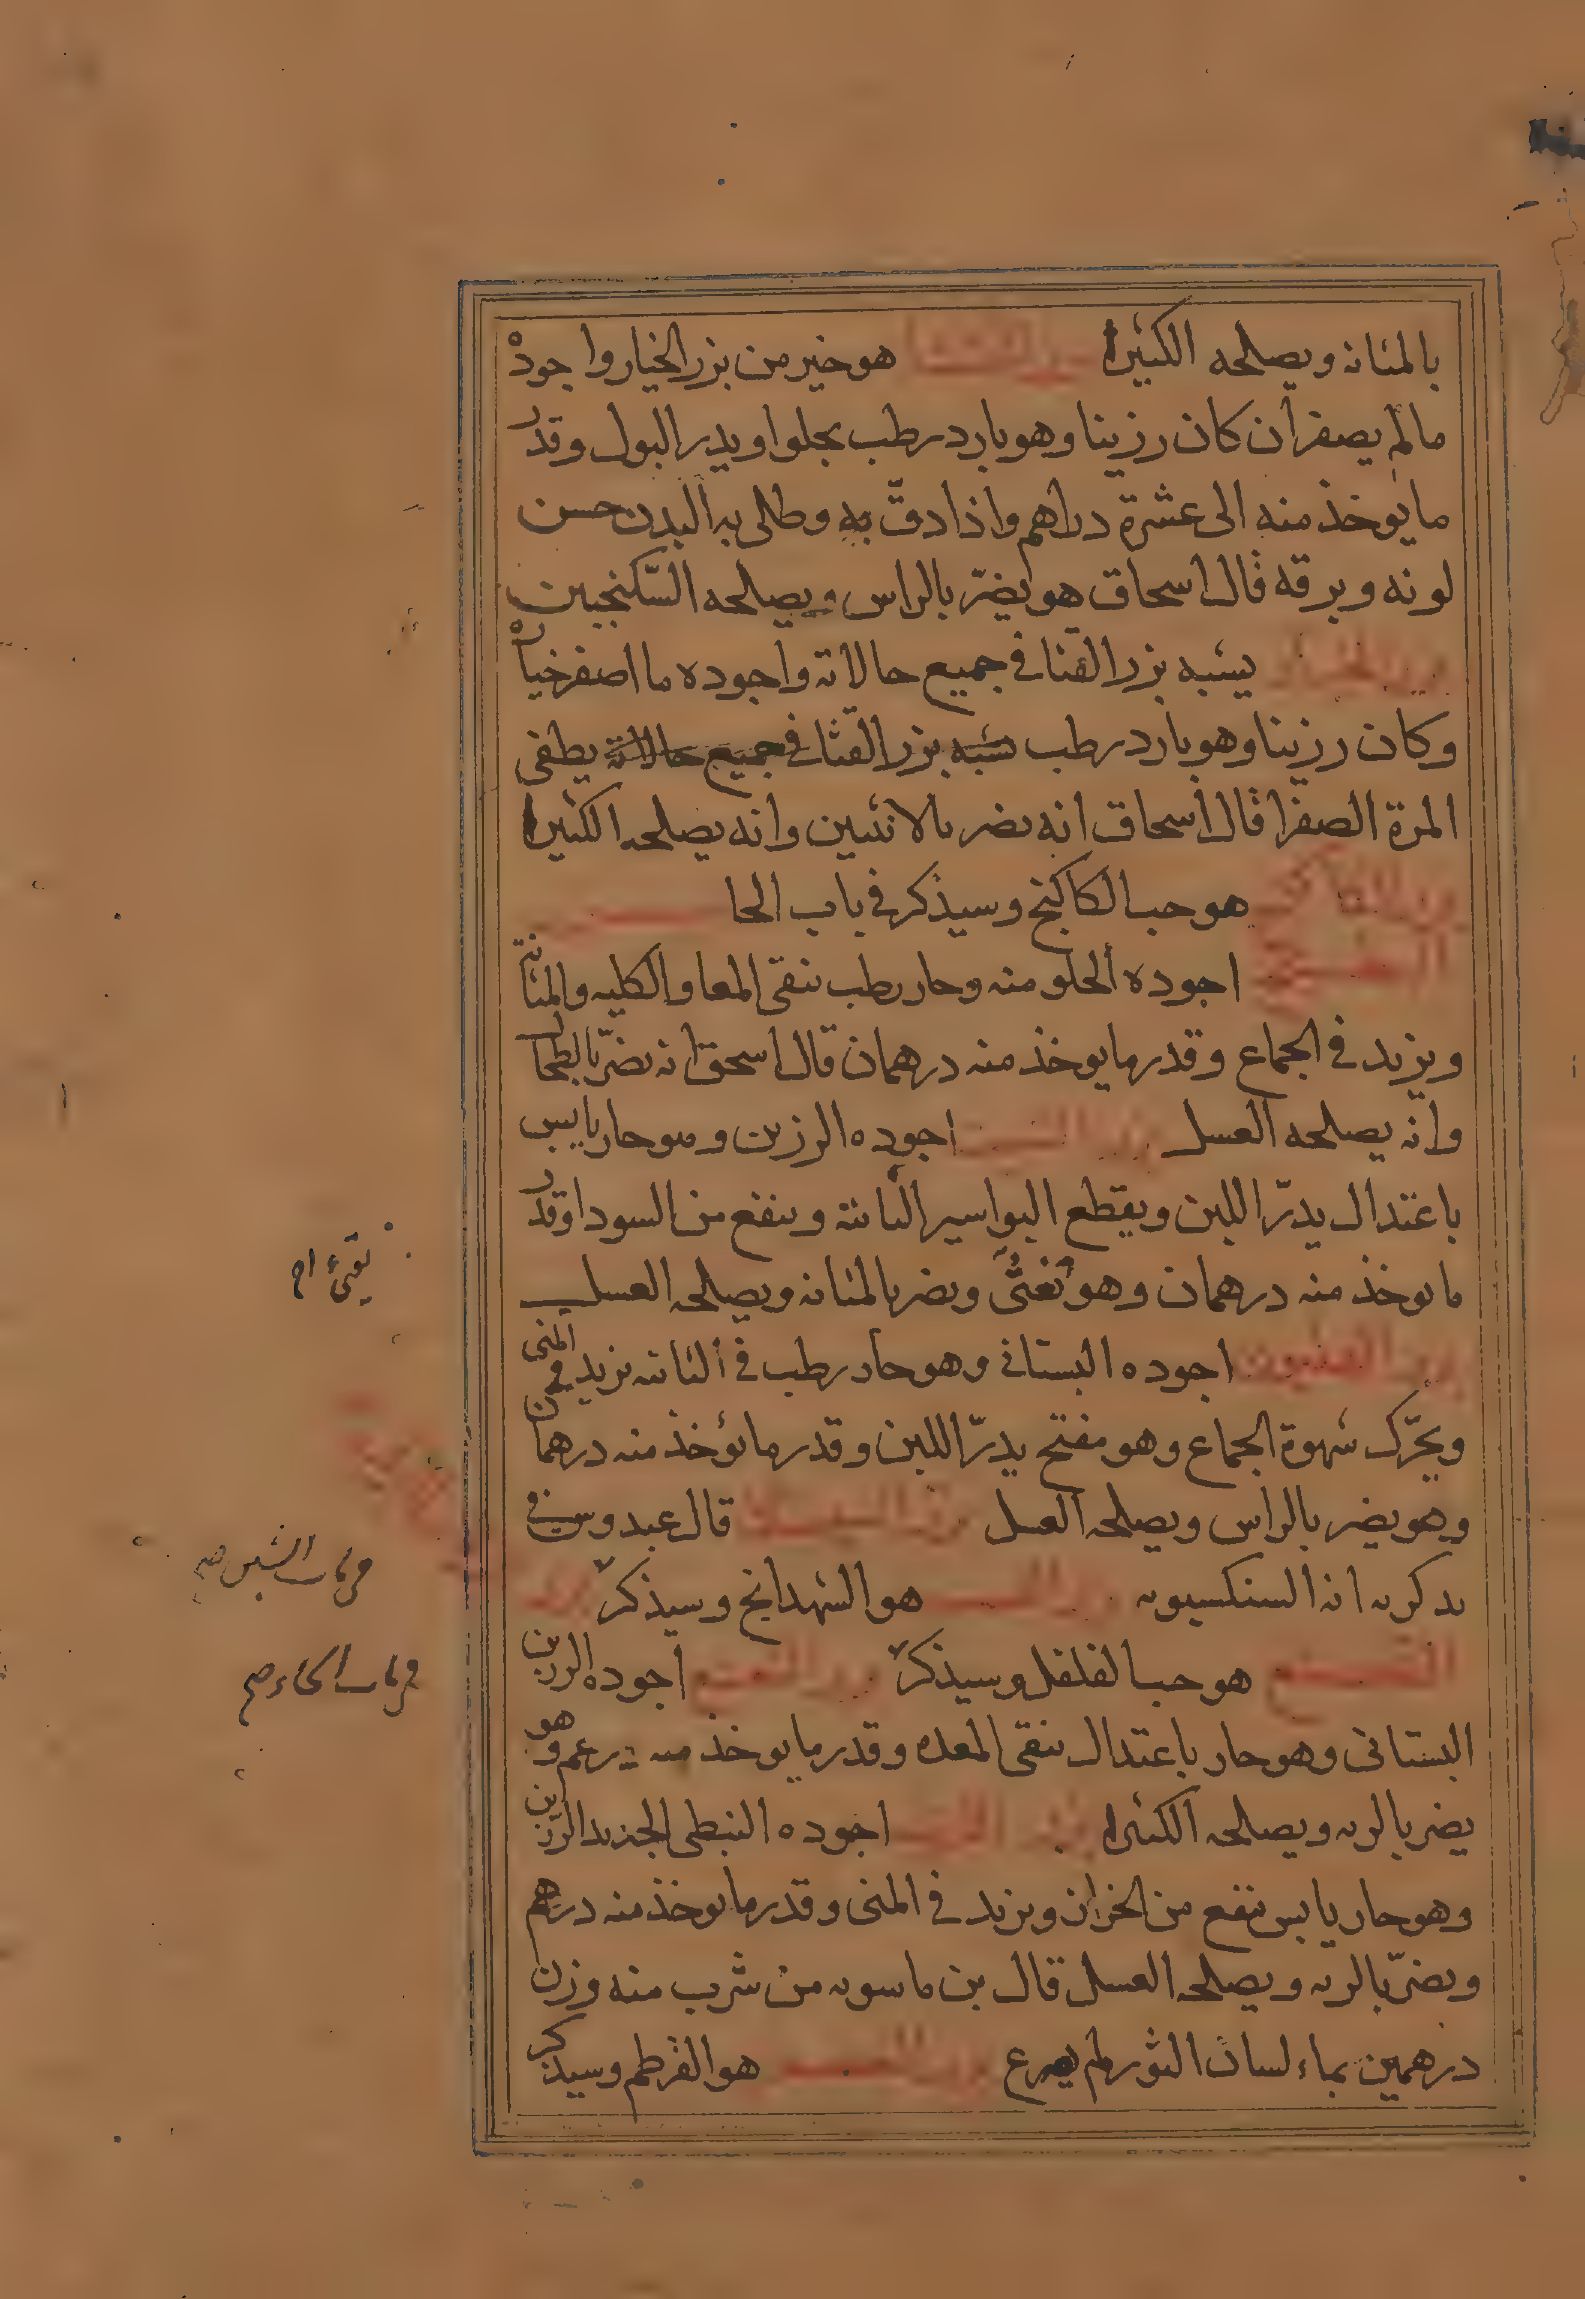 بالمثانه ويصلحه الكثيرا هو خير من بزر الخيار واجوده
مالم يصفر ان كان رزينا وهو بارد رطب يجلوا ويدر البول وقدر
ما يوخذ منه الى عشرة دراهم واذا دق به وطلى به البدن حسن
لونه وبرقه قال اسحاق هو يضرّ بالراس ويصلحه السّكنجبين
يشبه بزر القثا في جميع حالاته واجوده ما اصفر خياره
وكان رزينا وهو بارد رطب يشبه بزر القثا في جميع حالاته يطفى
المرة الصفرا قال اسحاق انه يضر بالانثيين وانه يصلحه الكثيرا
هو حب الكاكنج وسيذكر في باب الحا
اجوده الحلو منه وحار رطب ينقى المعا والكليه والمثانة
ويزيد في الجماع وقدر ما يوخذ منه درهمان قال اسحق انه يضرّ بالطحال
وانه يصلحه العسل اجوده الرزين وهو حار يابس
باعتدال يدرّ اللبن ويقطع البواسير النابته وينفع من السودا وقدر
ما يوخذ منه درهمان وهو يغثى ويضر بالمثانه ويصلحه العسل
بزر اجوده البستانى وهو حار رطب في الثانيه يزيد في المنى
ويحرّك شهوة الجماع وهو مفتح يدرّ اللبن وقدر ما يؤخذ منه درهمان
وهو يضر بالراس ويصلحه العسل قال عبدوس في
تذكرته انه السنكسبويه هو الشهدانج وسيذكر بزر
هو حب الفلفل وسيذكر اجوده الرزين
البستانى وهو حار باعتدال ينقى المعده وقدر ما يوخذ منه درهم وهو
يضر بالريه ويصلحه الكثيرا اجوده النبطى الجديد الرزين
وهو حار يابس ينفع من الخزان ويزيد في المنى وقدر ما يوخذ منه درهم
ويضرّ بالريه ويصلحه العسل قال بن ماسويه من شرب منه وزن
درهمين بماء لسان الثور لم يصرع هو القرطم وسيذكر
يقيء اح
في باب الشين صح
في باب الحاء صح